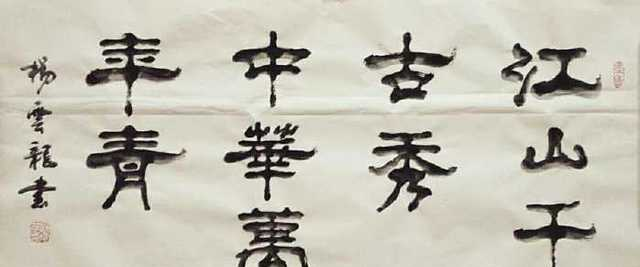 江山千
古秀
中華萬
年青
楊雲龍書